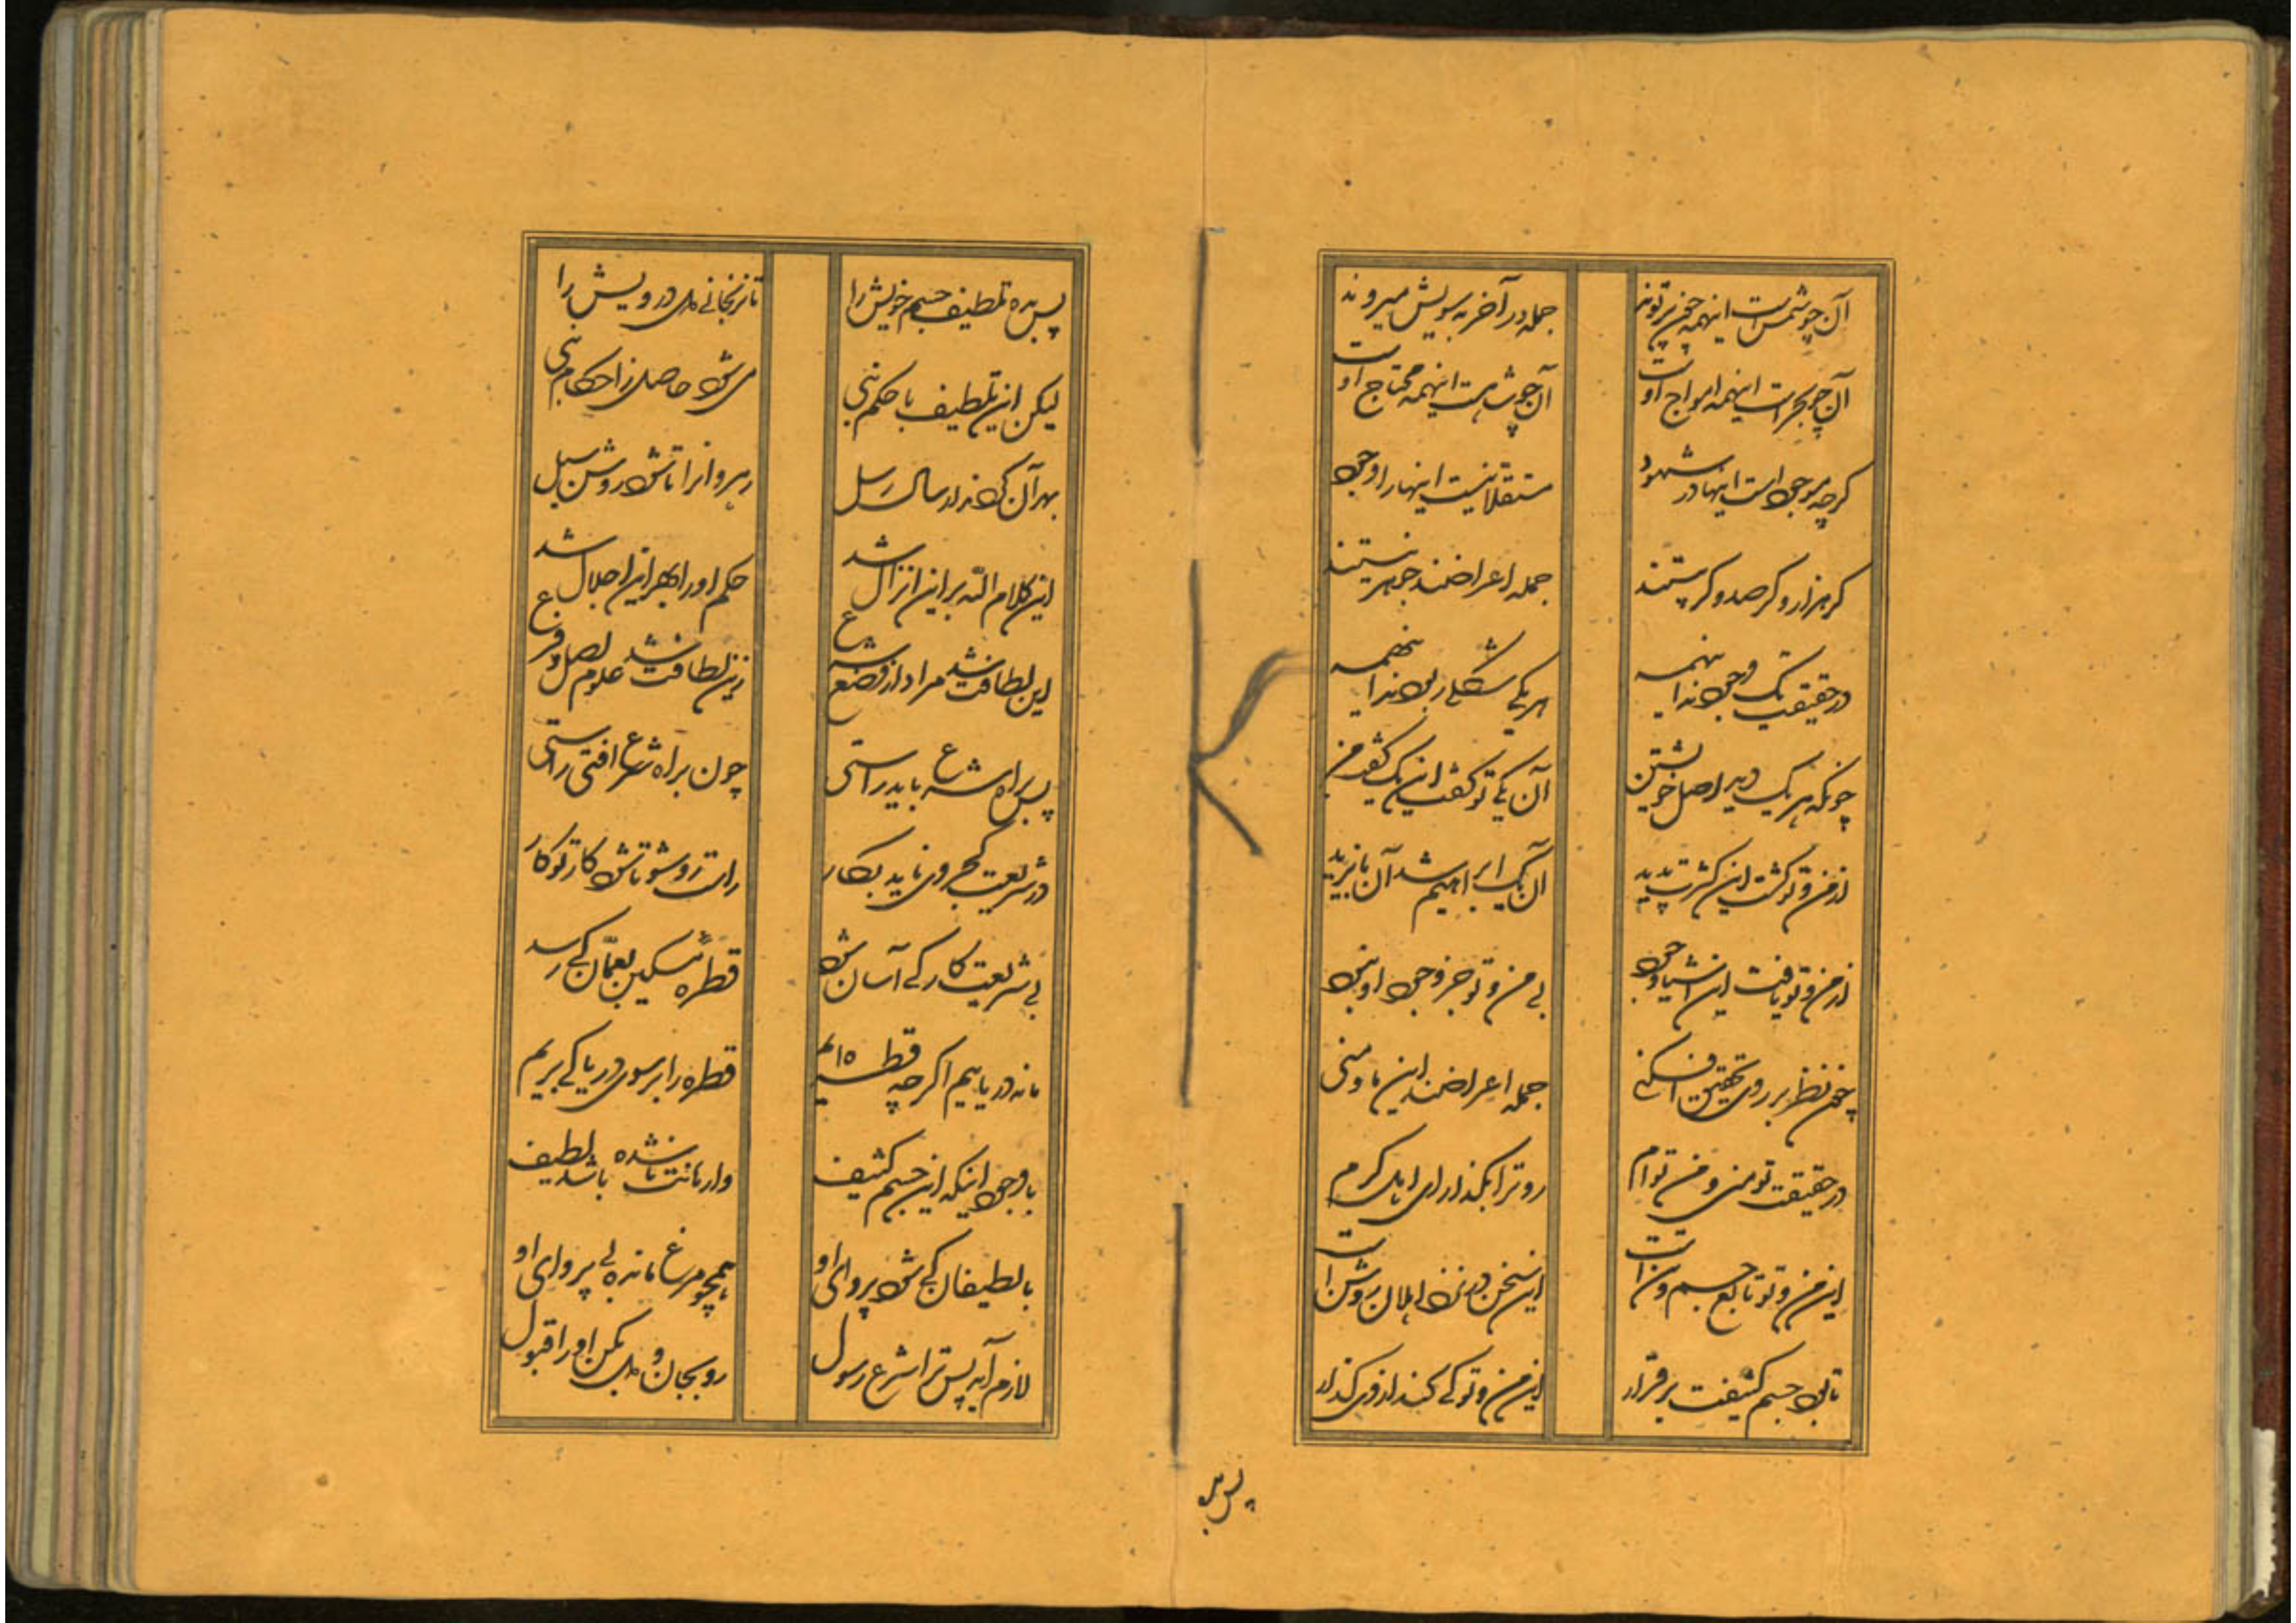 آن چو شمس است اینهمه چون پرتوند
جمله در آخر بسویش میروند
آن چو بحر است اینهمه امواج اوست
آن چو شه است اینهمه محتاج اوست
کرچه موجود است اینها در شهود
مستقلا نیست اینها را وجود
کر هزار و کر صد و کر بیستند
جمله اعراضند جوهر نیستند
در حقیقت یک وجودند اینهمه
هر یکی شکلی ربودند اینهمه
چونکه هر یک دید اصل خویشتن
آن یکی تو کفت این یک کفت من
از من و تو کشت این کثرت پدید
آن یک ابراهیم شد آن بایزید
از من و تو یافت این اشیا وجود
بی من و تو جز وجود او نبود
چون نظر بر روی تحقیق افکنی
جمله اعراضند این ما و منی
در حقیقت تو منی و من توام
رو ترا بگذار ای اهل کرم
این من و تو تابع جسم و تن است
این سخن در نزد اهلان روشن است
تا بود جسم کثیفت برقرار
این من و تو کی کند از وی کذار
پس بده
پس بده تلطیف جسم خویش را
تا نرنجانی دل درویش را
لیکن این تلطیف با حکم نبی
می شود حاصل ز احکام نبی
بهر آن کردند ارسال رسل
رهروانرا تا شود روشن سبل
این کلام الله بر این انزال شد
حکم او را بهر این اجلال شد
این لطافت شد مراد از وضع شرع
زین لطافت شد علوم اصل و فرع
پس براه شرع باید راستی
چون براه شرع افتی راستی
در شریعت کجروی ناید بکار
راست رو شو تا شود کار تو کار
بی شریعت کار کی آسان شود
قطره مسکین بعمان کی رسد
ما نه دریاییم اکرچه قطره ایم
قطره را بر سوی دریا کی بریم
با وجود اینکه این جسم کثیف
وارهانت تا شده باشد لطیف
با لطیفان کی شود پروای او
همچو مرغ مانده بی پروای او
لازم آمد پس ترا شرع رسول
رو بجان و دل بکن او را قبول